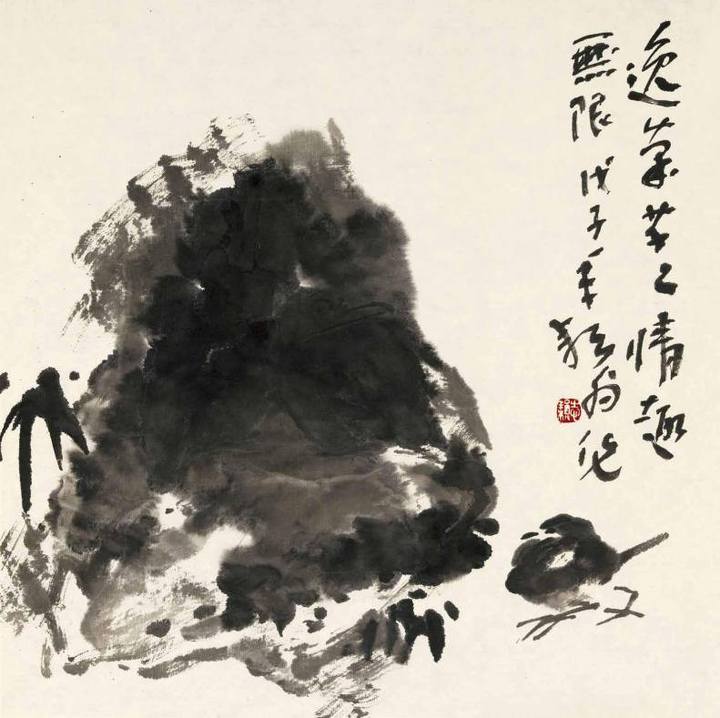 逸筆草々情趣
無限戊子年
作